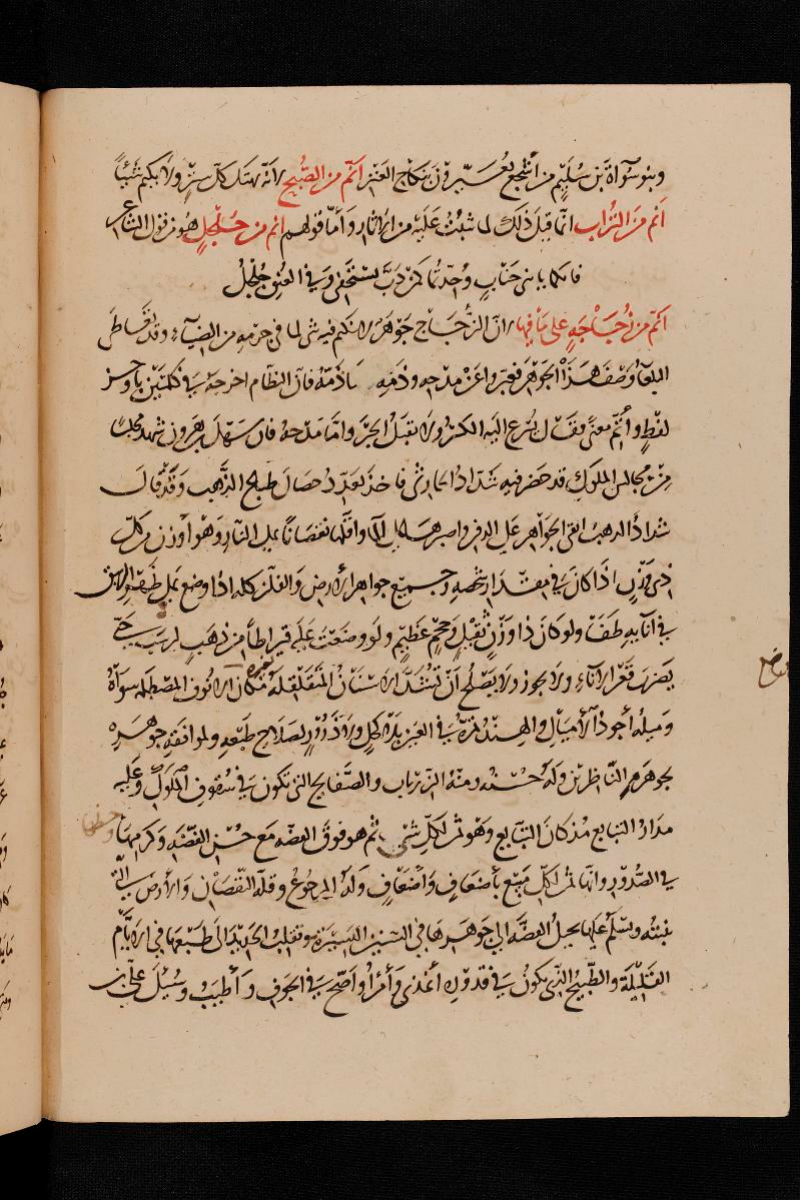 وبنو سوآة بن سليم من أشجع يعيرون بنكاح العنز أنمّ من الصّبح لانه يهتك كلّ ستر ولا يكتم شيئاً
أنم من التراب انما قيل ذلك لما يثبت عليه من الاثار وأما قولهم انم من جلجل فهو من قول الشاعر
فانكما يا بنى جناب وجدتما كمن دبّ يستخفى وفي العنق جلجل
انم من زجاجة على ما فيها لان الزجاج جوهر لا ينكتم فيه شى لما فى جرمه من الضياء وقد تعاطى
البلغا وصف هذا الجوهر فعبروا عن مدحه وذمه فاما ذمه فان النظام اخرجه في كلمتين باوجز
لفظ وأتم معنى فقال يسرع اليه الكسر ولا يقبل الجبر واما مدحه فان سهل بن هرون شهد مجلسا
من مجالس الملوك قد حضر فيه شداد الحارثى فاخذ يعدد خصال طباع الذهب وقد قال
شداد الذهب ابقى الجواهر على الدفن واصبرها على الما واقلها نقصانا على النار وهو أوزن من كل
ذى وزن اذا كان في مقدار شخصه وجميع جواهر الارض والفلز كله اذا وضع على ظهر الزيبق
في انايه طفت ولو كان ذا وزن ثقيل وحجم عظيم ولو وضعت عليه قيراطا من ذهب لرسب حتى
يضرب قعر الاناء ولا يجوز ولا يصلح أن تشد الاسنان المتقلقلة بغيره مكان الانوف المصطلمة سواه
وميله أجود الأميال والهند تمره في العين بلا كحل ولا ذرور لصلاح طبعه ولموافقة جوهره
لجوهر الناظرين وله حسنه ومنه الزرياب والصفايح التى تكون في سقوف الملوك وعليه
مدار التبايع مذ كان التبايع وهو ثمن لكل شى ثم هو فوق الفضه مع حسن الفضه وكرمها وحظها
في الصدور وانها ثمن لكل مبيع بأضعاف وأضعاف وله المرجوع وقلة النقصان والارض التى
تنبته ويسلم عليها يحيل الفضه الى جوهرها في السنين اليسيرة وتقلب الحديد الى طبعها في الايام
القليلة والطبيخ الذى يكون في قدوره أغذى وأمرأ وأصح في الجوف وأطيب وسئل على بن